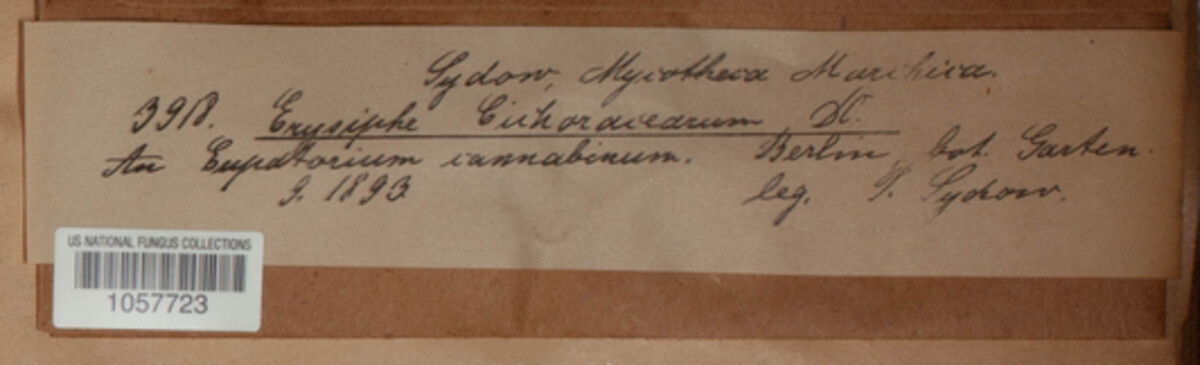 Sydow, Mycotheca Marchica.
3918. Erysiphe Cichoracearum DC.
An Eupatorium cannabinum. Berlin, bot. Garten.
9. 1893 leg. P. Sydow.
US NATIONAL FUNGUS COLLECTIONS
1057723